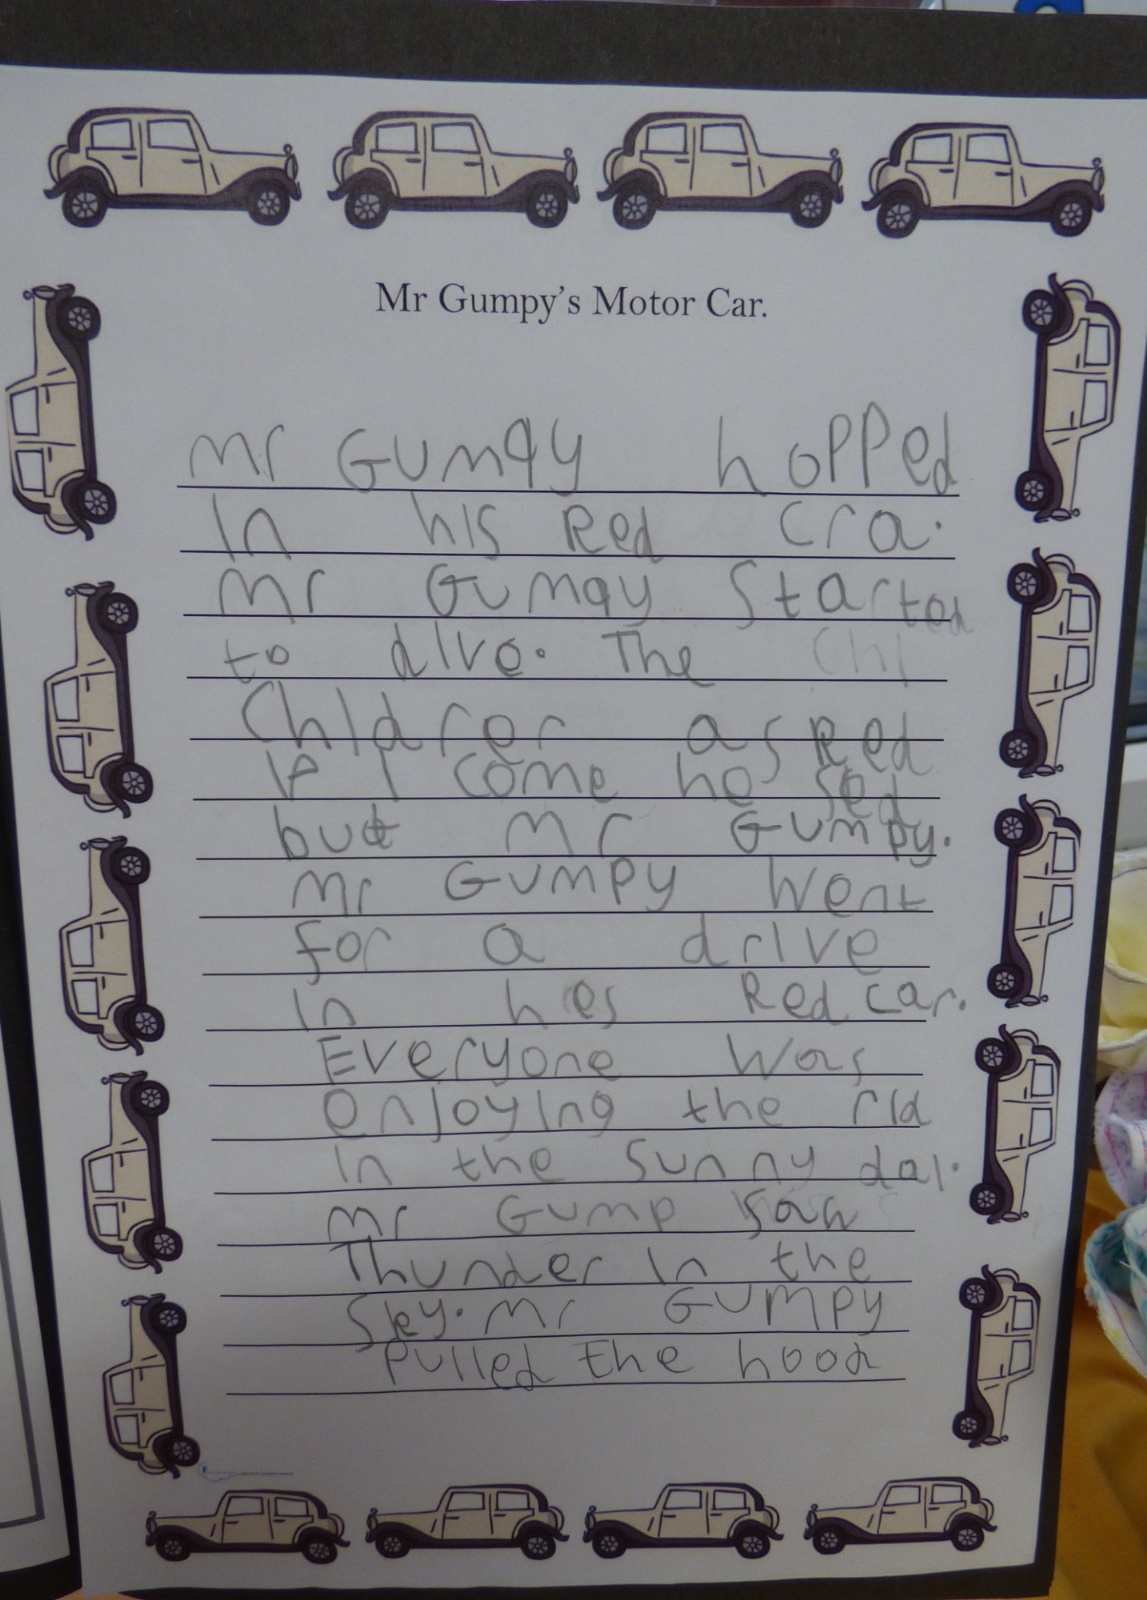 Mr Gumpy's Motor Car.
mr Gumqy hopped
in his Red cra.
mr Gumqy started
to dive. The Chi
Childrer asked
if I come he sed
but mr Gumpy.
mr Gumpy went
for a drive
in hes Red car.
Everyone was
enjoying the rid
in the sunny dai.
mr Gump saw
Thunder in the
sky. mr Gumpy
pulled the hood